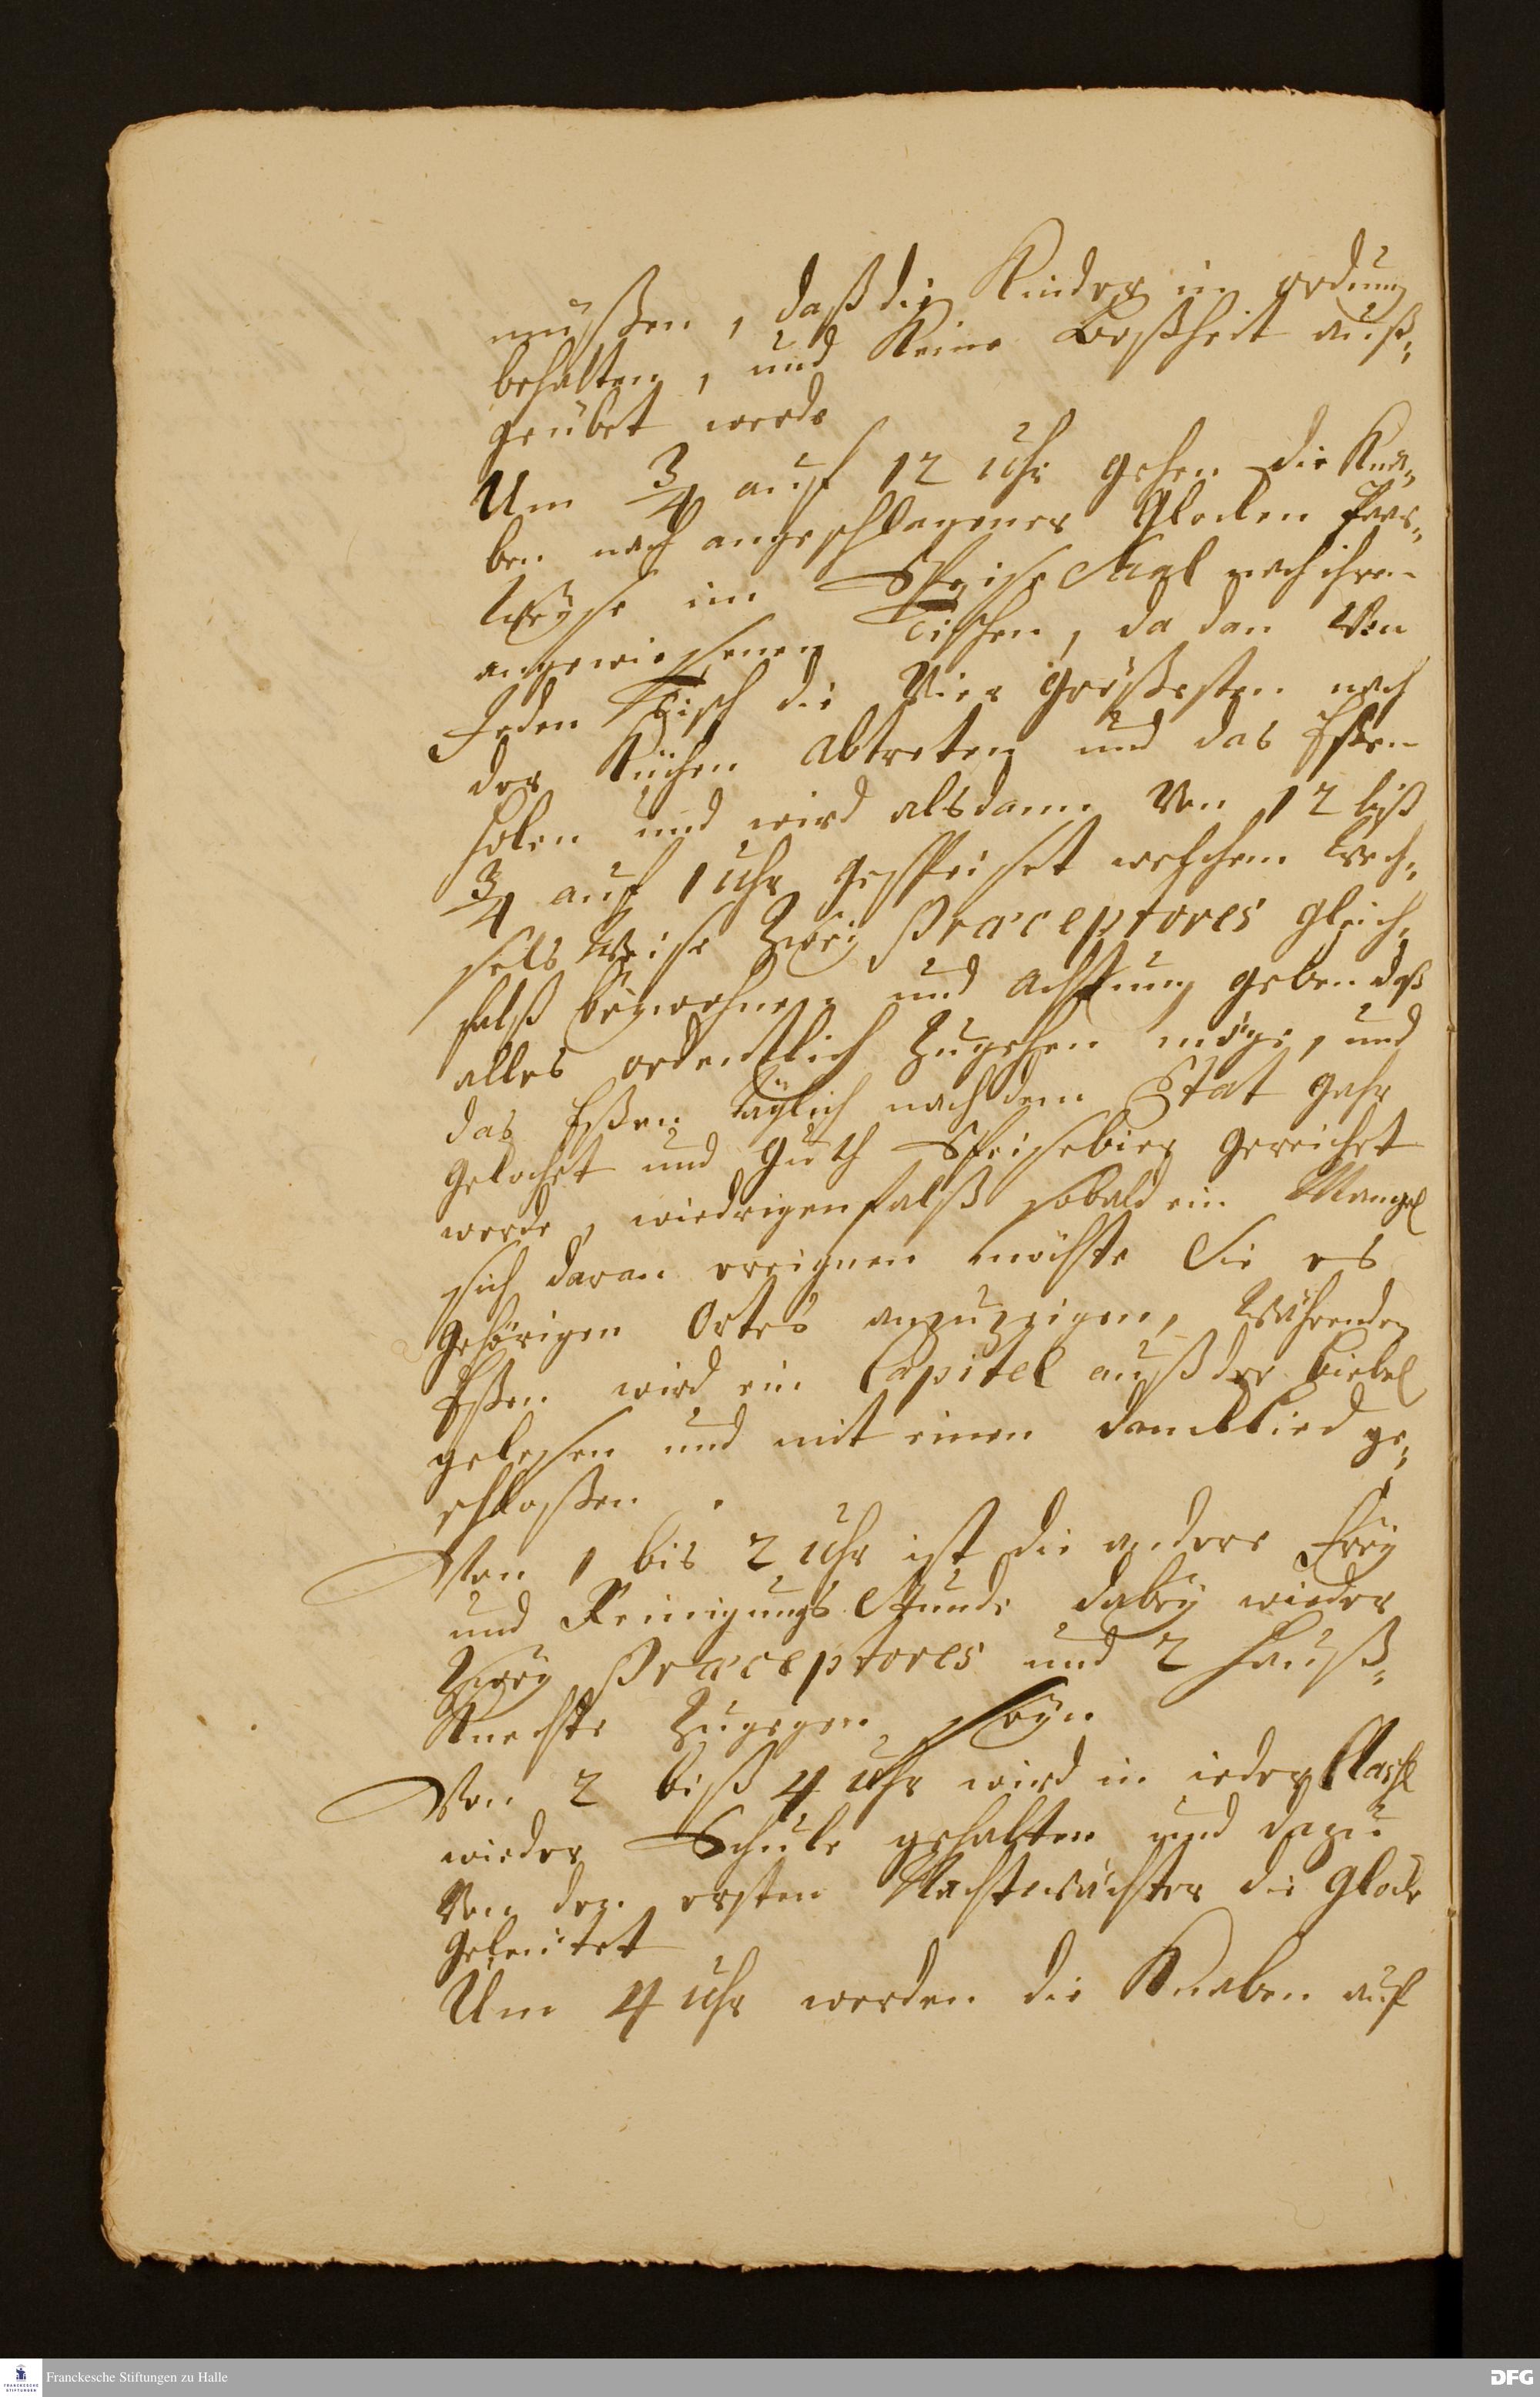 müßen, daß die Kinder in ordnung
behalten, und Keine Boßheit auß„
geübet werde
Um 3/4 auf 12 Uhr gehen die Kna„
ben nach angeschlagener Glocken Paar„
Weyse im Speise Saal nach ihren
angewiesenen Tischen, da dan Von
Jeden Tisch die Vier größesten nach
der Küchen abtreten und das Eßen
holen und wird alsdann Von 12 biß
3/4 auf 1 Uhr gespeiset welchem Wech„
sels Weise Zwey Præceptores gleich„
falß beywohnen und achtung geben daß
alles ordentlich Zugehen möge, und
das Eßen täglich nach dem Etat gahr
gekochet und guth Speisebier gereichet
werde, wiedrigenfalß sobald ein Mangel
sich daran ereignen möchte Sie es
gehörigen Ortes anzuzeigen, Währenden
Eßen wird ein Capitel auß der Biebel
gelesen und mit einen Dancklied ge„
schloßen.
Von 1 bis 2 Uhr ist die andere Frey
und Reinigungs Stunde dabey wieder
Zwey Præceptores und 2 Hauß„
Knechte Zugegen seyn
Von 2 biß 4 Uhr wird in ieder Classe
wieder Schule gehalten und dazu
Von den ersten Nachtwächter die Glocke
geleutet
Um 4 Uhr werden die Knaben auf
Franckesche Stiftungen zu Halle
FRANCKESCHE STIFTUNGEN
DFG